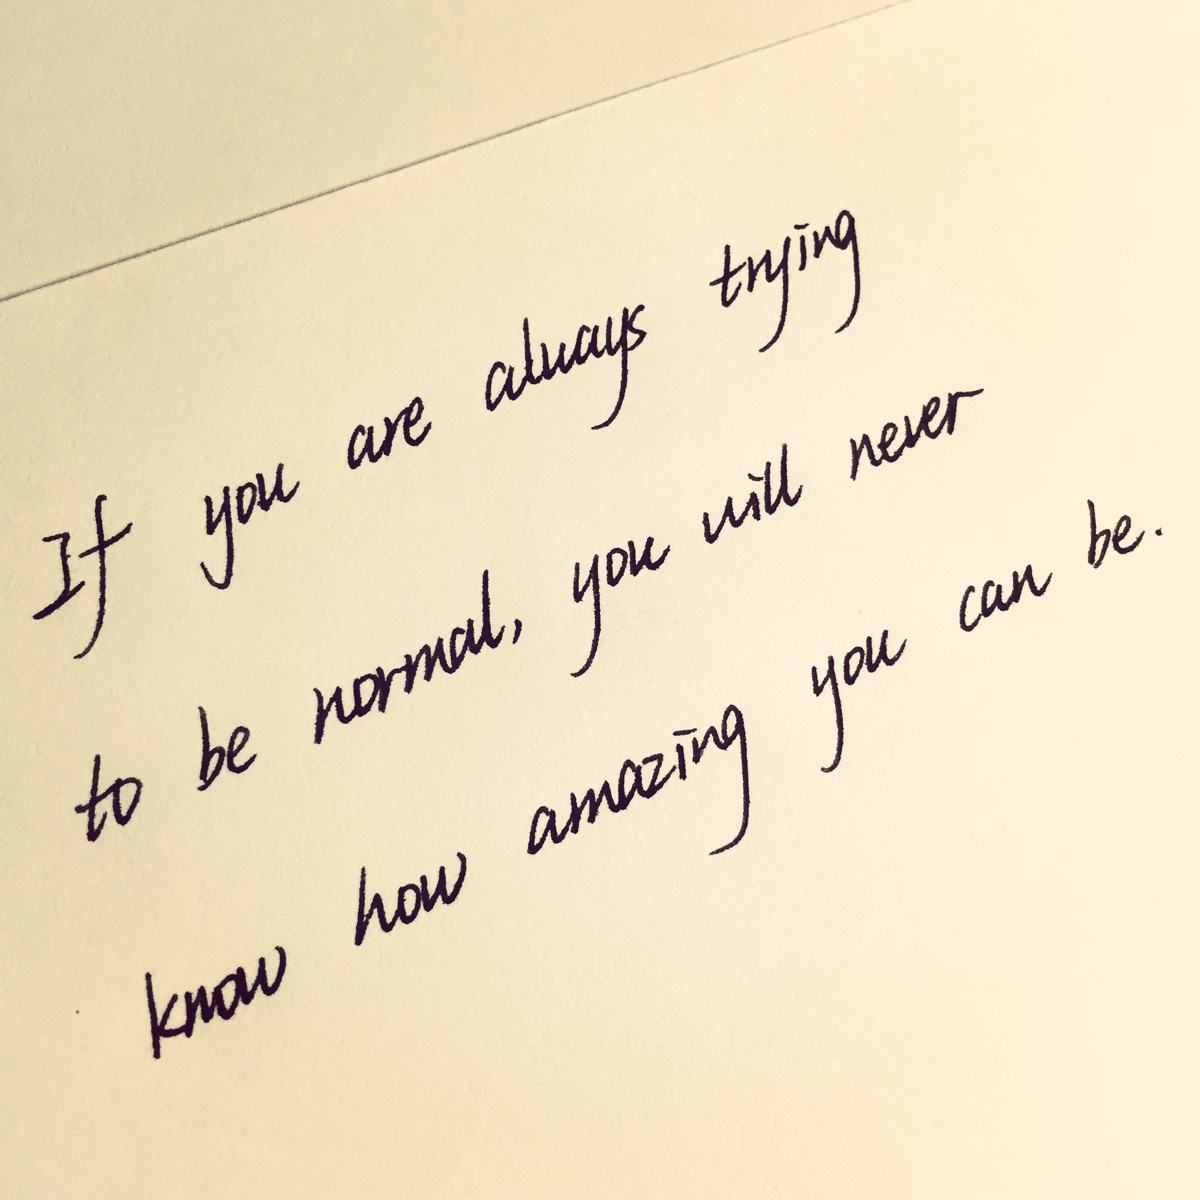 If you are always trying
to be normal, you will never
know how amazing you can be.